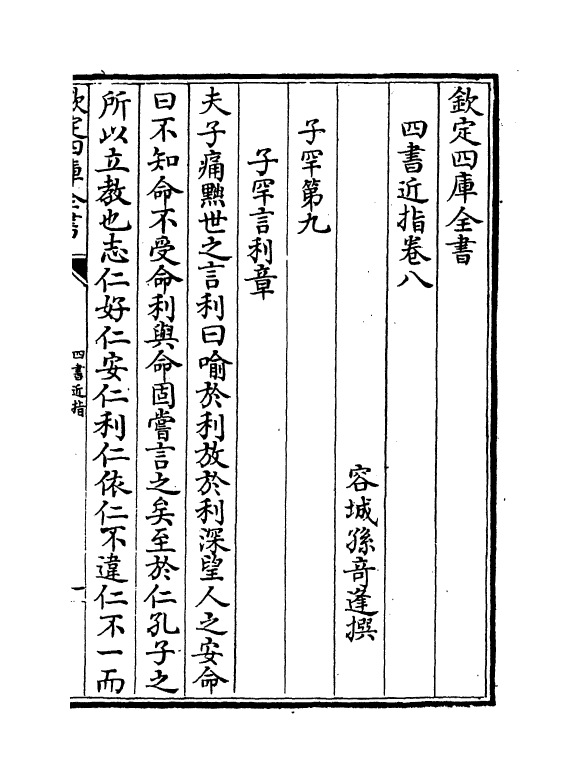 欽定四庫全書
四書近指卷八
容城孫竒逢撰
子罕第九
子罕言利章
夫子痛黜世之言利曰喻於利放於利深望人之安命
曰不知命不受命利與命固嘗言之矣至於仁孔子之
所以立教也志仁好仁安仁利仁依仁不違仁不一而
欽定四庫全書
四書近指
一